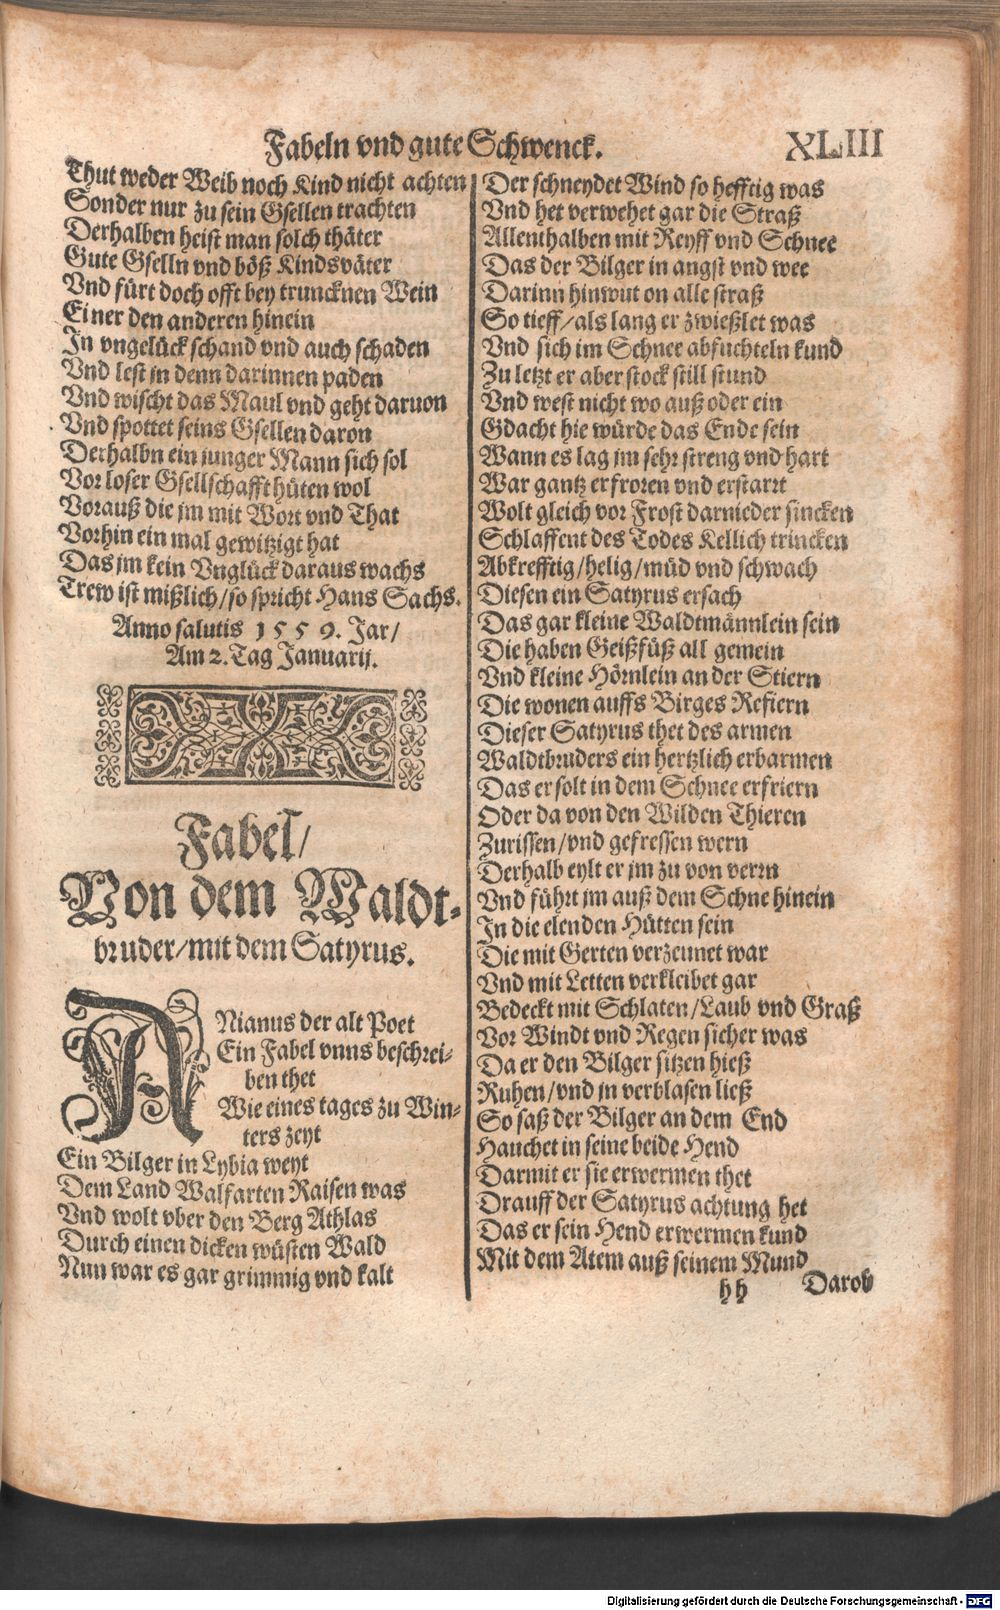 Fabeln vnd gute Schwenck.
XLIII
Thut weder Weib noch Kind nicht achten
Sonder nur zu sein Gsellen trachten
Derhalben heist man solch thäter
Gute Gselln vnd böß Kindsväter
Vnd fürt doch offt bey truncknen Wein
Einer den anderen hinein
In vngelück schand vnd auch schaden
Vnd lest jn denn darinnen paden
Vnd wischt das Maul vnd geht daruon
Vnd spottet seins Gsellen daron
Derhalbn ein junger Mann sich sol
Vor loser Gsellschafft hüten wol
Vorauß die jm mit Wort vnd That
Vorhin ein mal gewitzigt hat
Das jm kein Vnglück daraus wachs
Trew ist mißlich/so spricht Hans Sachs.
Anno salutis 1559. Jar/
Am 2. Tag Januarij.
Fabel/
Von dem Waldt-
bruder/mit dem Satyrus.
ANianus der alt Poet
Ein Fabel vnns beschrei-
ben thet
Wie eines tages zu Win-
ters zeyt
Ein Bilger in Lybia weyt
Dem Land Walfarten Raisen was
Vnd wolt vber den Berg Athlas
Durch einen dicken wüsten Wald
Nun war es gar grimmig vnd kalt
Der schneydet Wind so hefftig was
Vnd het verwehet gar die Straß
Allenthalben mit Reyff vnd Schnee
Das der Bilger in angst vnd wee
Darinn hinwut on alle straß
So tieff/als lang er zwießlet was
Vnd sich im Schnee abfuchteln kund
Zu letzt er aber stock still stund
Vnd west nicht wo auß oder ein
Gdacht hie würde das Ende sein
Wann es lag jm sehr streng vnd hart
War gantz erfroren vnd erstarrt
Wolt gleich vor Frost darnieder sincken
Schlaffent des Todes Kellich trincken
Abkrefftig/helig/müd vnd schwach
Diesen ein Satyrus ersach
Das gar kleine Waldtmännlein sein
Die haben Geißfüß all gemein
Vnd kleine Hörnlein an der Stiern
Die wonen auffs Birges Refiern
Dieser Satyrus thet des armen
Waldtbruders ein hertzlich erbarmen
Das er solt in dem Schnee erfriern
Oder da von den Wilden Thieren
Zurissen/vnd gefressen wern
Derhalb eylt er jm zu von verrn
Vnd führt jm auß dem Schne hinein
In die elenden Hütten sein
Die mit Gerten verzeunet war
Vnd mit Letten verkleibet gar
Bedeckt mit Schlaten/Laub vnd Graß
Vor Windt vnd Regen sicher was
Da er den Bilger sitzen hieß
Ruhen/vnd jn verblasen ließ
So saß der Bilger an dem End
Hauchet in seine beide Hend
Darmit er sie erwermen thet
Drauff der Satyrus achtung het
Das er sein Hend erwermen kund
Mit dem Atem auß seinem Mund
hh
Darob
Digitalisierung gefördert durch die Deutsche Forschungsgemeinschaft - DFG